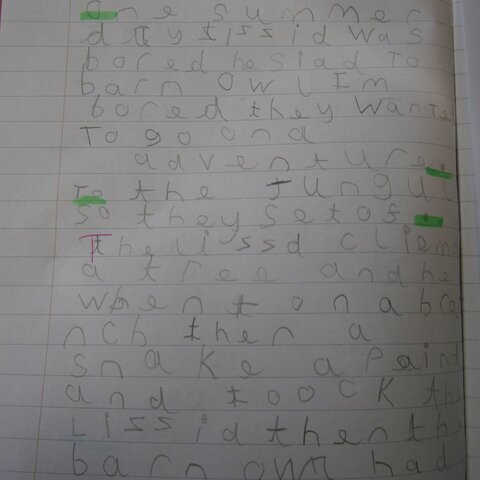 One summer
day Lissid was
bored he siad to
barn owl Im
bored they wanted
To go on a
adventure.
To the jungul
so they set of.
The lissd cliemd
a tree and he
whent on a bra
nch then a
snake apaind
and toock the
Lissid then the
barn own had